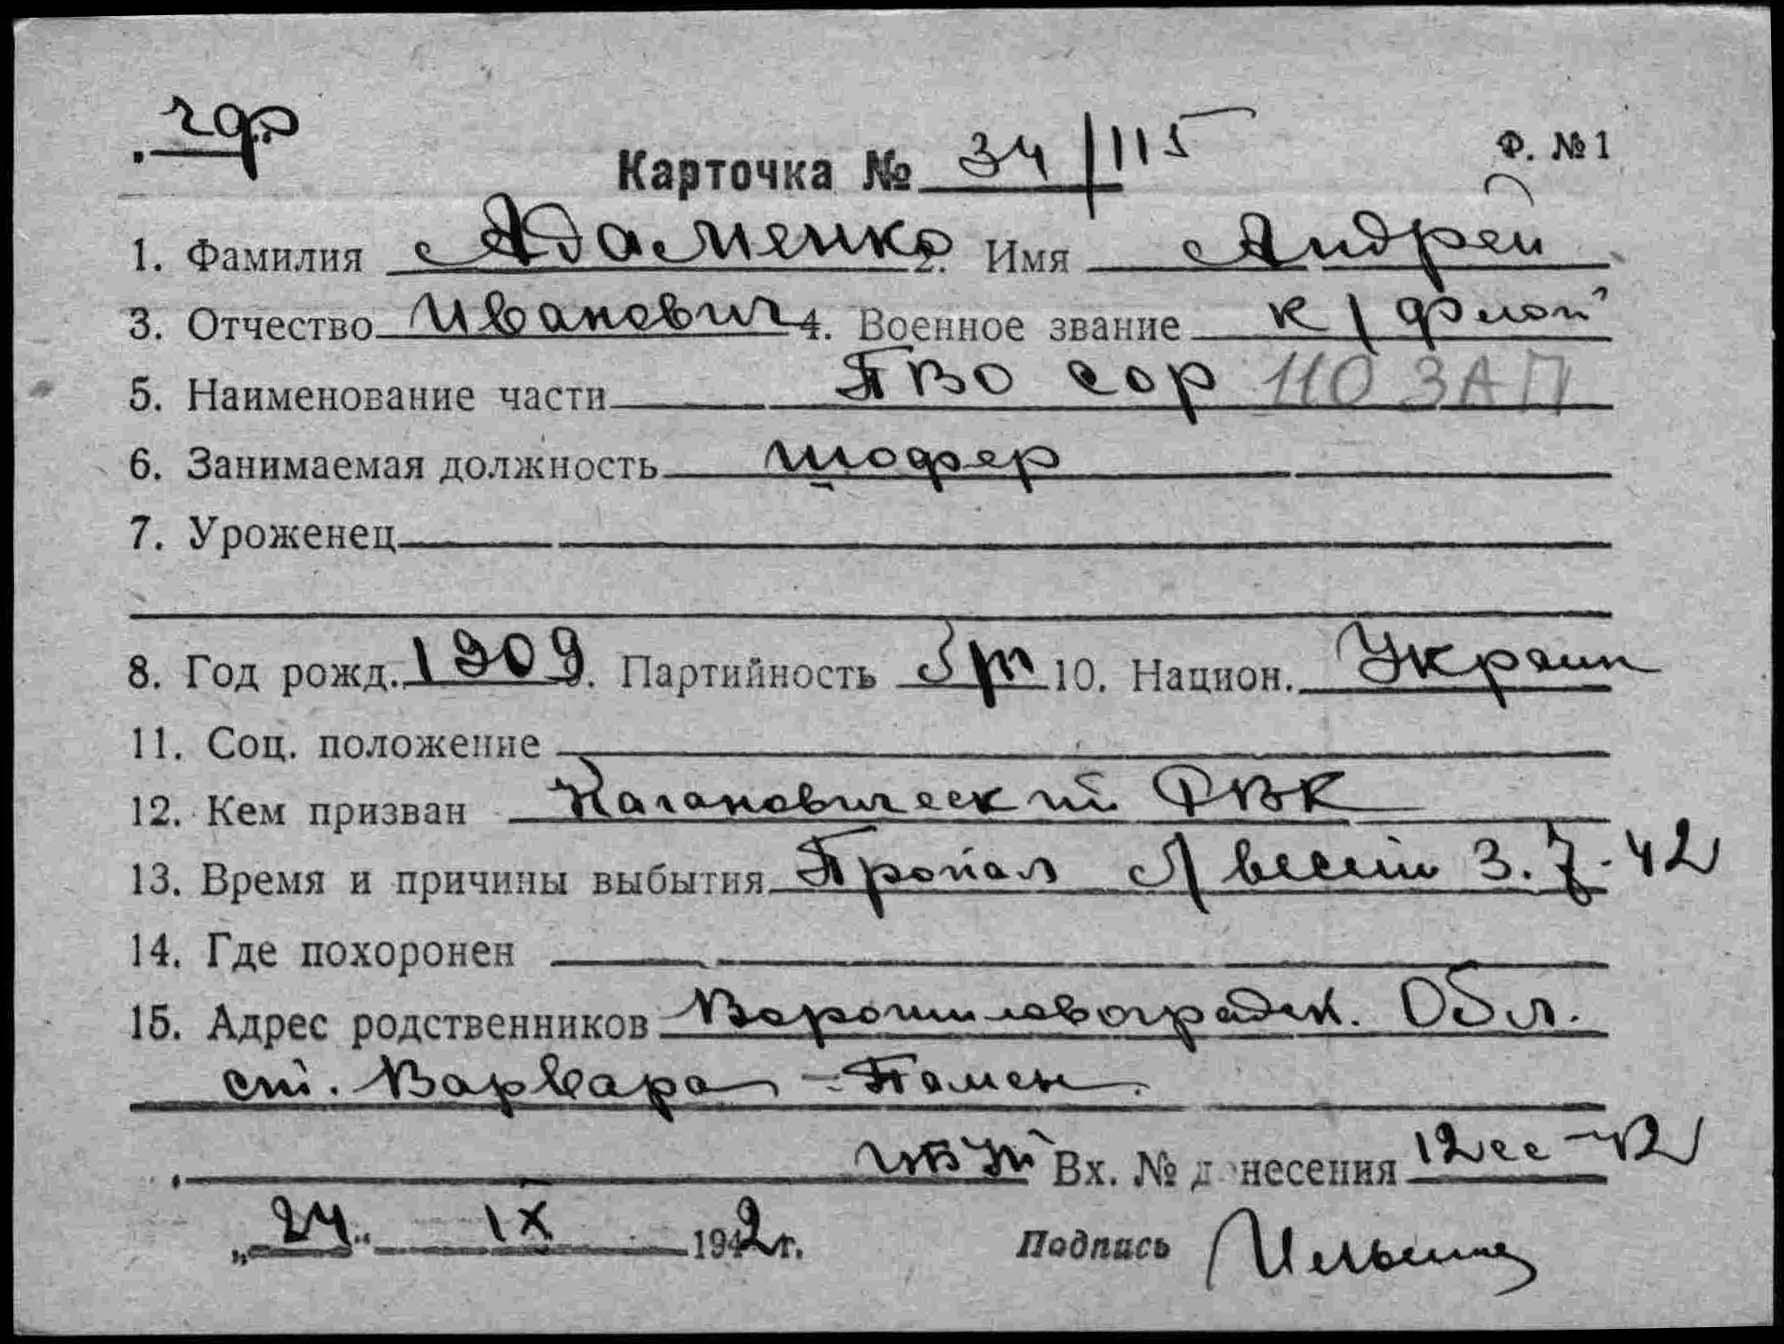 чф
Карточка № 34/115 Ф. №1
1. Фамилия Адаменко 2. Имя Андрей
3. Отчество Иванович 4. Военное звание к/флот
5. Наименование части ПВО сор 110 ЗАП
6. Занимаемая должность шофер
7. Уроженец
8. Год рожд. 1909 9. Партийность б/п 10. Национ. Украин
11. Соц. положение
12. Кем призван Кагановический РВК
13. Время и причины выбытия Пропал б/вести 3.7.42
14. Где похоронен
15. Адрес родственников Ворошиловоградск. Обл.
ст. Варвара -
Вх. № донесения 12сс-42
„24“ IX 1942 г. Подпись